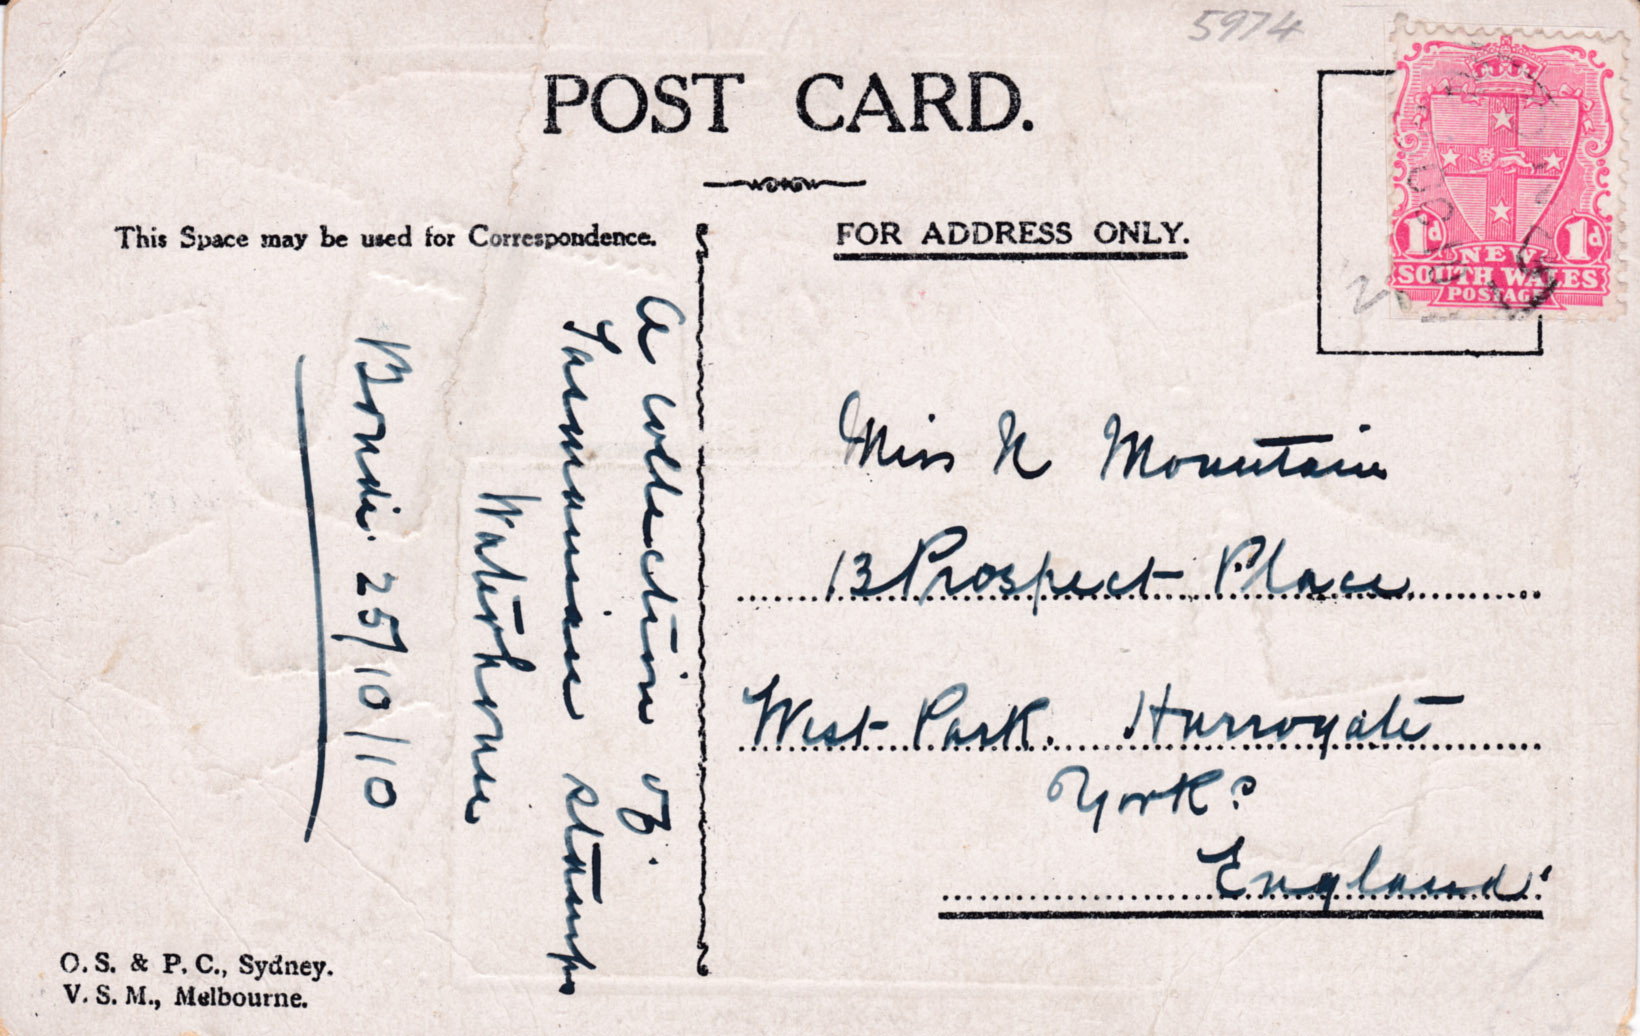 5974
POST CARD.
This Space may be used for Correspondence.
FOR ADDRESS ONLY.
1d 1d
NEW
SOUTH WALES
POSTAGE
A collection of.
Tasmanian stamps
Waterhouse
Bondi. 25/10/10
Miss N Mountain
13 Prospect Place
West Park. Harrogate
Yorks
England.
O. S. & P. C., Sydney.
V. S. M., Melbourne.